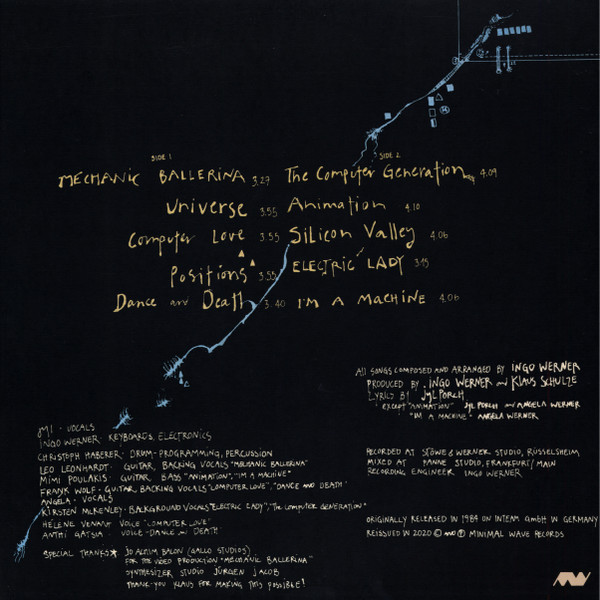 SIDE 1
MECHANIC BALLERINA 3.27
Universe 3.55
Computer Love 3.55
Positions 3.55
Dance and Death 3.40
SIDE 2
The Computer Generation 4.09
Animation 4.10
Silicon Valley 4.06
ELECTRIC LADY 3.45
I'M A MACHINE 4.06
All SONGS COMPOSED AND ARRANGED BY INGO WERNER
PRODUCED BY INGO WERNER AND KLAUS SCHULZE
LYRICS BY JYL PORCH
EXCEPT "ANIMATION" JYL PORCH AND ANGELA WERNER
"I'M A MACHINE" ANGELA WERNER
VOCALS
INGO WERNER KEYBOARDS, ELECTRONICS
CHRISTOPH HABERER - DRUM-PROGRAMMING, PERCUSSION
LEO LEONHARDT - GUITAR, BACKING VOCALS "MECHANIC BALLERINA"
MIMI POULAKIS - GUITAR BASS "ANIMATION", "I'M A MACHINE"
FRANK WOLF - GUITAR, BACKING VOCALS "COMPUTER LOVE", "DANCE AND DEATH"
ANGELA - VOCALS
KIRSTEN MCKENLEY - BACKGROUND VOCALS "ELECTRIC LADY", "The COMPUTER GENERATION"
HÉLÈNE VENANT VOICE "COMPUTER LOVE"
ANTHI GATSIA - VOICE - DANCE AND DEATH
SPECIAL THANKS JOACHIM BALON (GALLO STUDIOS)
FOR THE VIDEO PRODUCTION "MECHANIC BALLERINA"
SYNTHESIZER STUDIO JÜRGEN JACOB
THANK-YOU KLAUS FOR MAKING THIS POSSIBLE!
RECORDED AT STÖWE & WERNER STUDIO, RÜSSELSHEIM
MIXED AT PANNE STUDIO, FRANKFURT/MAIN
RECORDING ENGINEER INGO WERNER
ORIGINALLY RELEASED IN 1984 ON INTEAM GmbH IN GERMANY
REISSUED IN 2020 © MINIMAL WAVE RECORDS